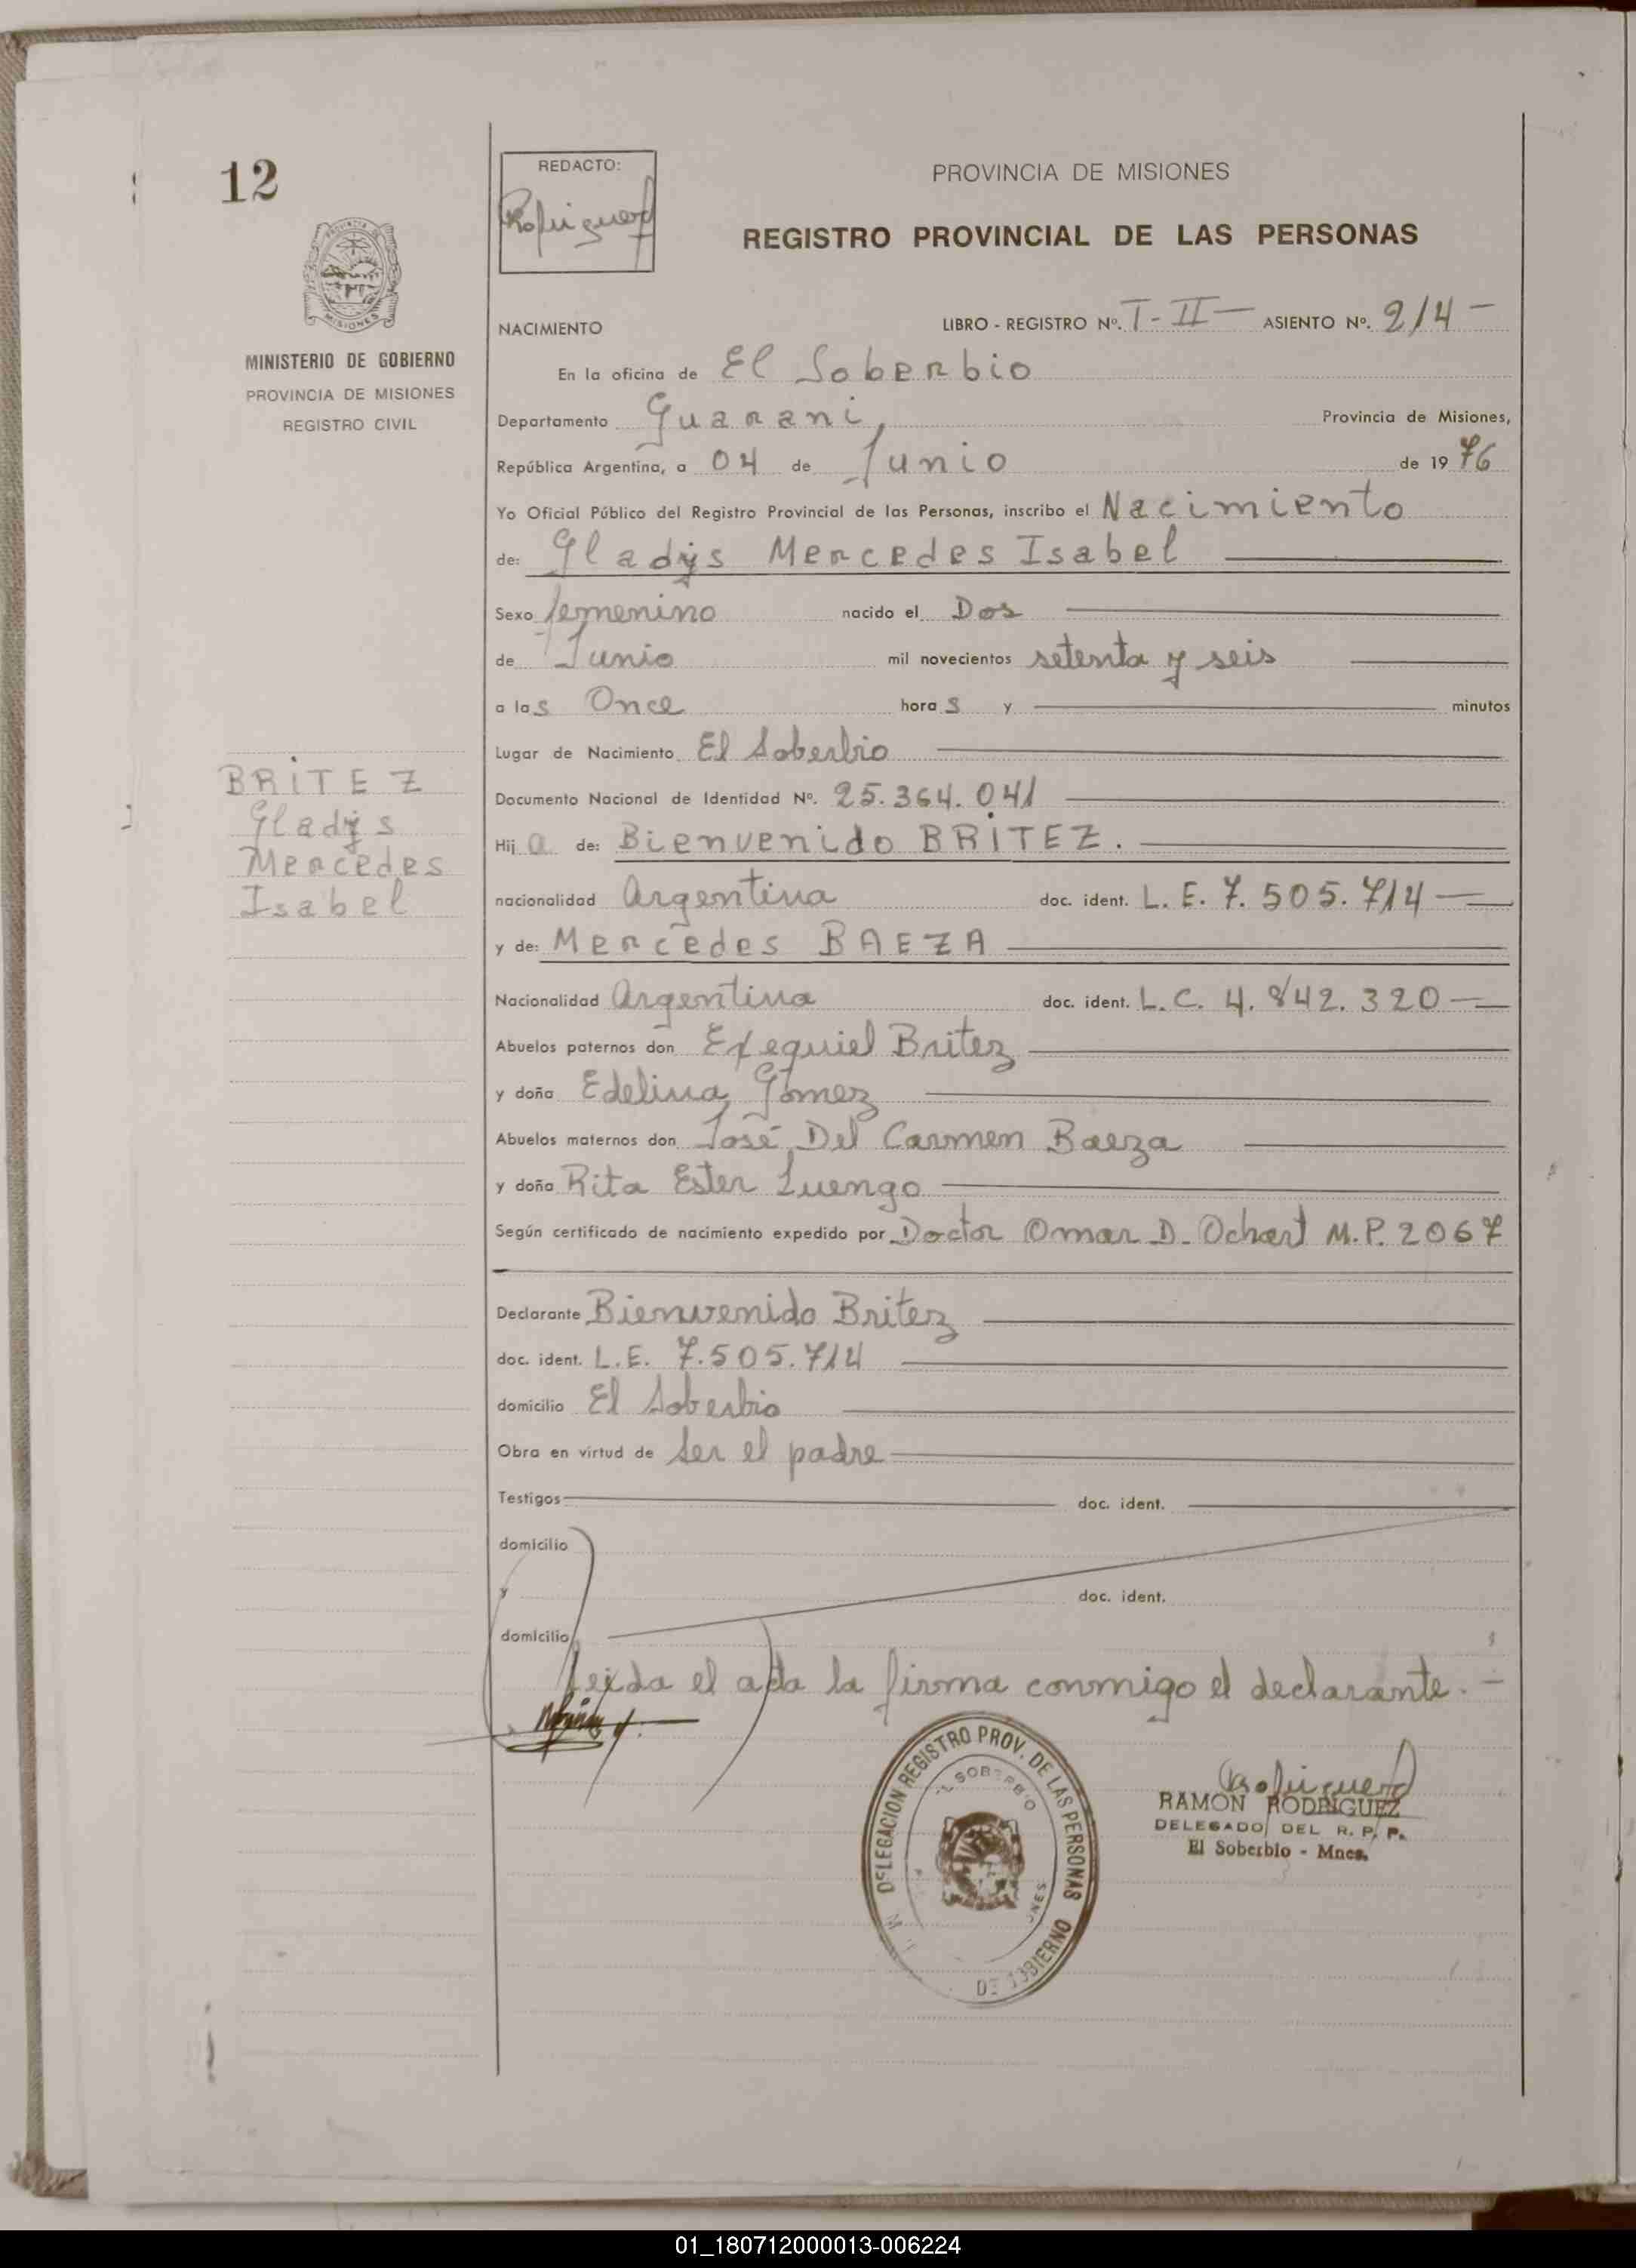 12
REDACTO:
Rodriguez
PROVINCIA DE MISIONES
REGISTRO PROVINCIAL DE LAS PERSONAS
MISIONES
MINISTERIO DE GOBIERNO
PROVINCIA DE MISIONES
REGISTRO CIVIL
NACIMIENTO LIBRO - REGISTRO Nº. T-II — ASIENTO Nº. 214 -
En la oficina de El Soberbio
Departamento Guarani, Provincia de Misiones,
República Argentina, a 04 de Junio de 1976
Yo Oficial Público del Registro Provincial de las Personas, inscribo el Nacimiento
de: Gladys Mercedes Isabel
Sexo femenino nacido el Dos
de Junio mil novecientos setenta y seis
a las Once horas y minutos
Lugar de Nacimiento El Soberbio
Documento Nacional de Identidad Nº. 25.364.041
BRITEZ
Gladys
Mercedes
Isabel
Hija de: Bienvenido BRITEZ.
nacionalidad Argentina doc. ident. L.E. 7.505.714
y de: Mercedes BAEZA
Nacionalidad Argentina doc. ident. L.C. 4.842.320
Abuelos paternos don Exequiel Britez
y doña Edelina Gómez
Abuelos maternos don José Del Carmen Baeza
y doña Rita Ester Luengo
Según certificado de nacimiento expedido por Doctor Omar D. Ochart M.P. 2067
Declarante Bienvenido Britez
doc. ident. L.E. 7.505.714
domicilio El Soberbio
Obra en virtud de Ser el padre
Testigos doc. ident.
domicilio
y doc. ident.
domicilio
Leida el acta la firma conmigo el declarante. -
DELEGACION REGISTRO PROV. DE LAS PERSONAS
EL SOBERBIO
DE GOBIERNO
Rodriguez
RAMON RODRIGUEZ
DELEGADO DEL R. P. P.
El Soberbio - Mnes.
01_180712000013-006224